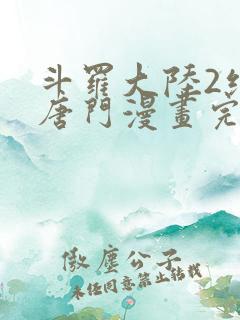 斗羅大陸2絕
唐門漫畫完
傲塵公子
未經同意禁止轉載